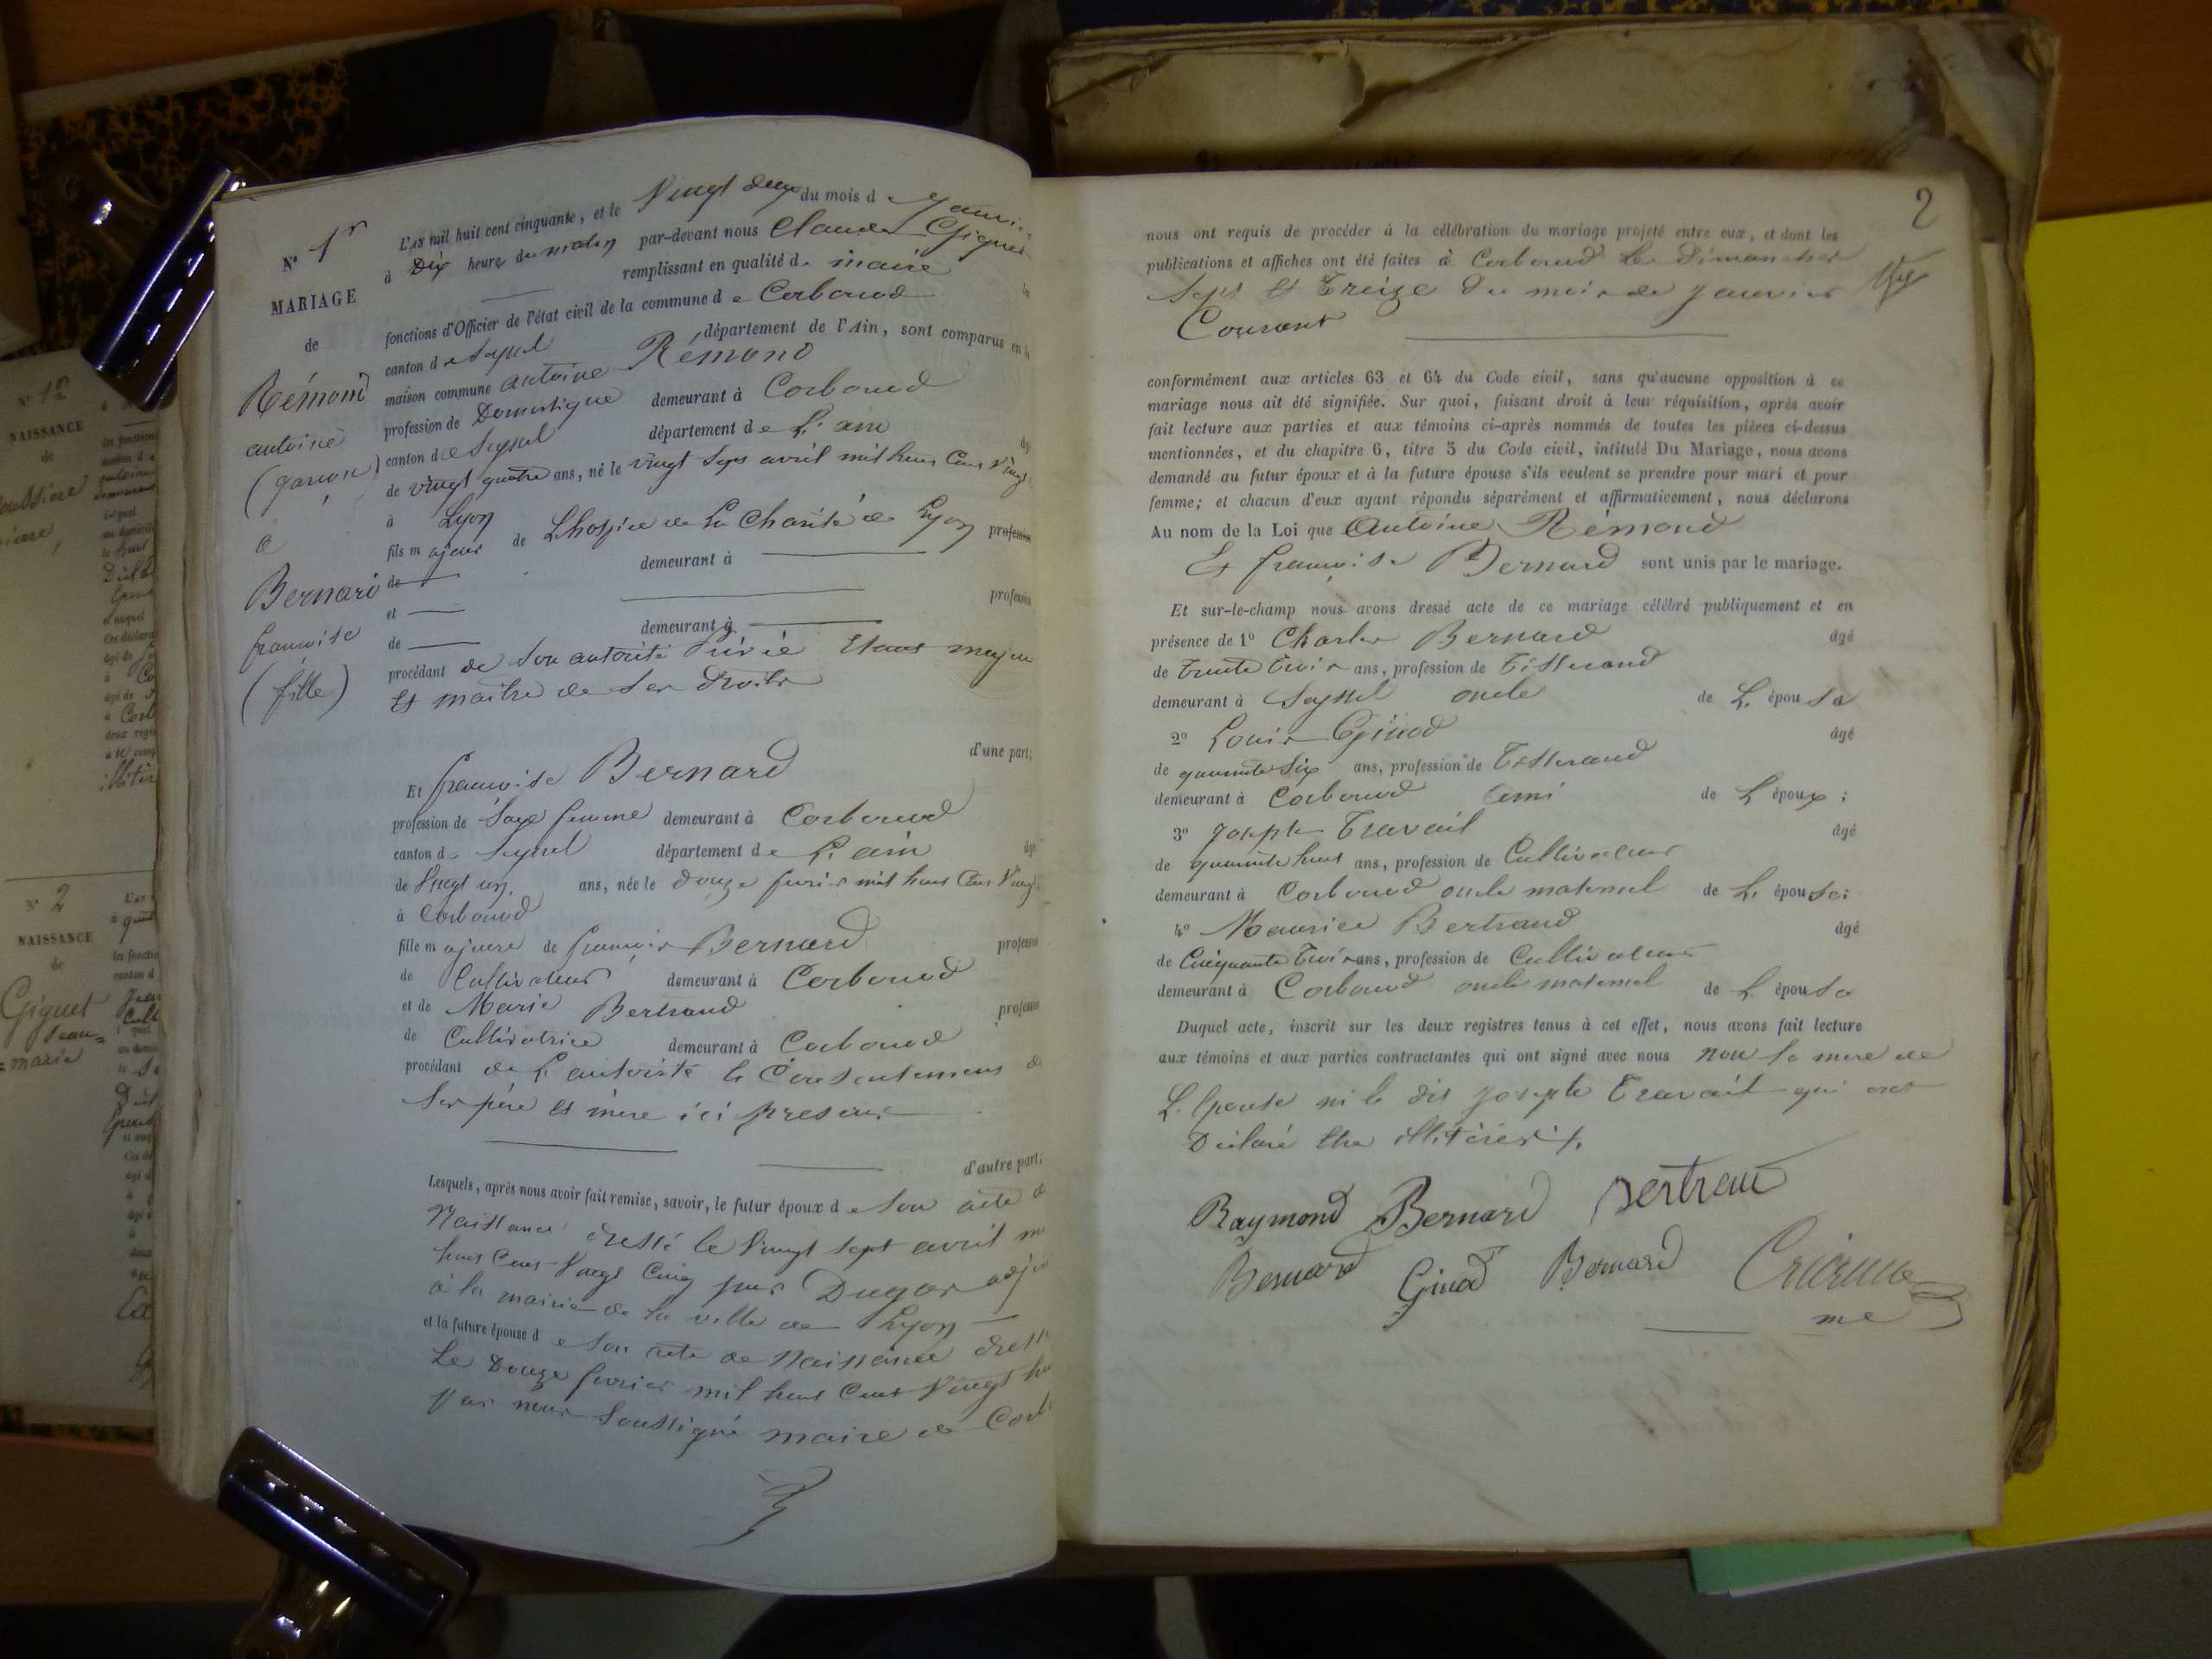 N° 1er
MARIAGE
de
Rémond
antoine
(garcon)
&
Bernard
francoise
(fille)
L'AN mil huit cent cinquante, et le Vingt deux du mois de Janvier
à Dix heures du matin par-devant nous Claude Giguet
remplissant en qualité de maire
fonctions d'Officier de l'état civil de la commune de Corbonod
canton de Seyssel département de l'Ain, sont comparus en
maison commune antoine Rémond
profession de Domestique demeurant à Corbonod
canton de Seyssel département de L'ain
de vingt quatre ans, né le vingt Sept avril mil huit Cent Vingt
à Lyon
fils majeur de Lhospice de La Charité de Lyon profession
de demeurant à
et profession
de demeurant à
procédant de Son autorité Privée Etant majeur
Et maître de Ses droits
d'une part;
Et francoise Bernard
profession de Sage femme demeurant à Corbonod
canton de Seyssel département de L'ain
de Vingt un ans, née le douze fevrier mil huit Cent Vingt
à Corbonod
fille majeure de francois Bernard profession
de Cultivateur demeurant à Corbonod
et de Marie Bertrand profession
de Cultivatrice demeurant à Corbonod
procédant de L'autorité & Consentement de
Ses père et mere ici presents
d'autre part;
Lesquels, après nous avoir fait remise, savoir, le futur époux de Son acte de
Naissance dressé le Vingt Sept avril m
huit Cent Vingt Cinq par Dugas adj
à la mairie de la ville de Lyon
et la future épouse de Son acte de Naissance dress
Le Douze fevrier mil huit Cent Vingt hu
Par nous Soussigné maire de Corb
2
nous ont requis de procéder à la célébration du mariage projeté entre eux, et dont les
publications et affiches ont été faites à Corbonod Les Dimanches
Sept Et Treize du mois de Janvier
Courant
conformément aux articles 63 et 64 du Code civil, sans qu'aucune opposition à ce
mariage nous ait été signifiée. Sur quoi, faisant droit à leur réquisition, après avoir
fait lecture aux parties et aux témoins ci-après nommés de toutes les pièces ci-dessus
mentionnées, et du chapitre 6, titre 5 du Code civil, intitulé Du Mariage, nous avons
demandé au futur époux et à la future épouse s'ils veulent se prendre pour mari et pour
femme; et chacun d'eux ayant répondu séparément et affirmativement, nous déclarons
Au nom de la Loi que Antoine Rémond
Et francoise Bernard sont unis par le mariage.
Et sur-le-champ nous avons dressé acte de ce mariage célébré publiquement et en
présence de 1° Charles Bernard âgé
de Trente Trois ans, profession de Tisserand
demeurant à Seyssel oncle de L'épouse
2° Louis Ginod âgé
de quarante Six ans, profession de Tisserand
demeurant à Corbonod ami de L'époux;
3° Joseph Travail âgé
de quarante huit ans, profession de Cultivateur
demeurant à Corbonod oncle maternel de L'épouse;
4° Maurice Bertrand âgé
de Cinquante Trois ans, profession de Cultivateur
demeurant à Corbonod oncle maternel de L'épouse
Duquel acte, inscrit sur les deux registres tenus à cet effet, nous avons fait lecture
aux témoins et aux parties contractantes qui ont signé avec nous non la mere de
L'épouse ni le dit Joseph Travail qui ont
Déclaré Etre illitérés
Raymond Bernard Bertrand
Bernard Ginod Bernard
me
N° 1er
NAISSANCE
de
N° 2
NAISSANCE
de
Giguet
Jean=
=marie